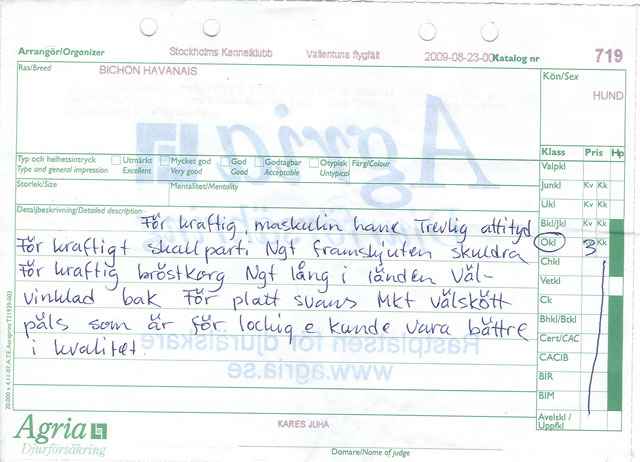 Arrangör/Organizer Stockholms Kennelklubb Vallentuna flygfält 2009-08-23-00 Katalog nr 719
Ras/Breed BICHON HAVANAIS Kön/Sex
HUND
Klass Pris Hp
Typ och helhetsintryck Utmärkt Mycket god God Godtagbar Otypisk Färg/Colour Valpkl
Type and general impression Excellent Very good Good Acceptable Untypical
Storlek/Size Mentalitet/Mentality Junkl Kv Kk
Ukl Kv Kk
Detaljbeskrivning/Detailed description
För kraftig, maskulin hane Trevlig attityd Bkl/Jkl Kv Kk
För kraftigt skallparti Ngt framskjuten skuldra Ökl 3 Kk
För kraftig bröstkorg Ngt lång i länden Väl- Chkl
vinklad bak För platt svans Mkt välskött Vetkl
päls som är för lochig e kunde vara bättre Ck
i kvalitet. Bhkl/Btkl
Cert/CAC
CACIB
BIR
BIM
Avelskl/
Uppfkl
Rastplatsen för djurälskare
www.agria.se
Agria
Djurförsäkring
KARES JUHA
Domare/Name of judge